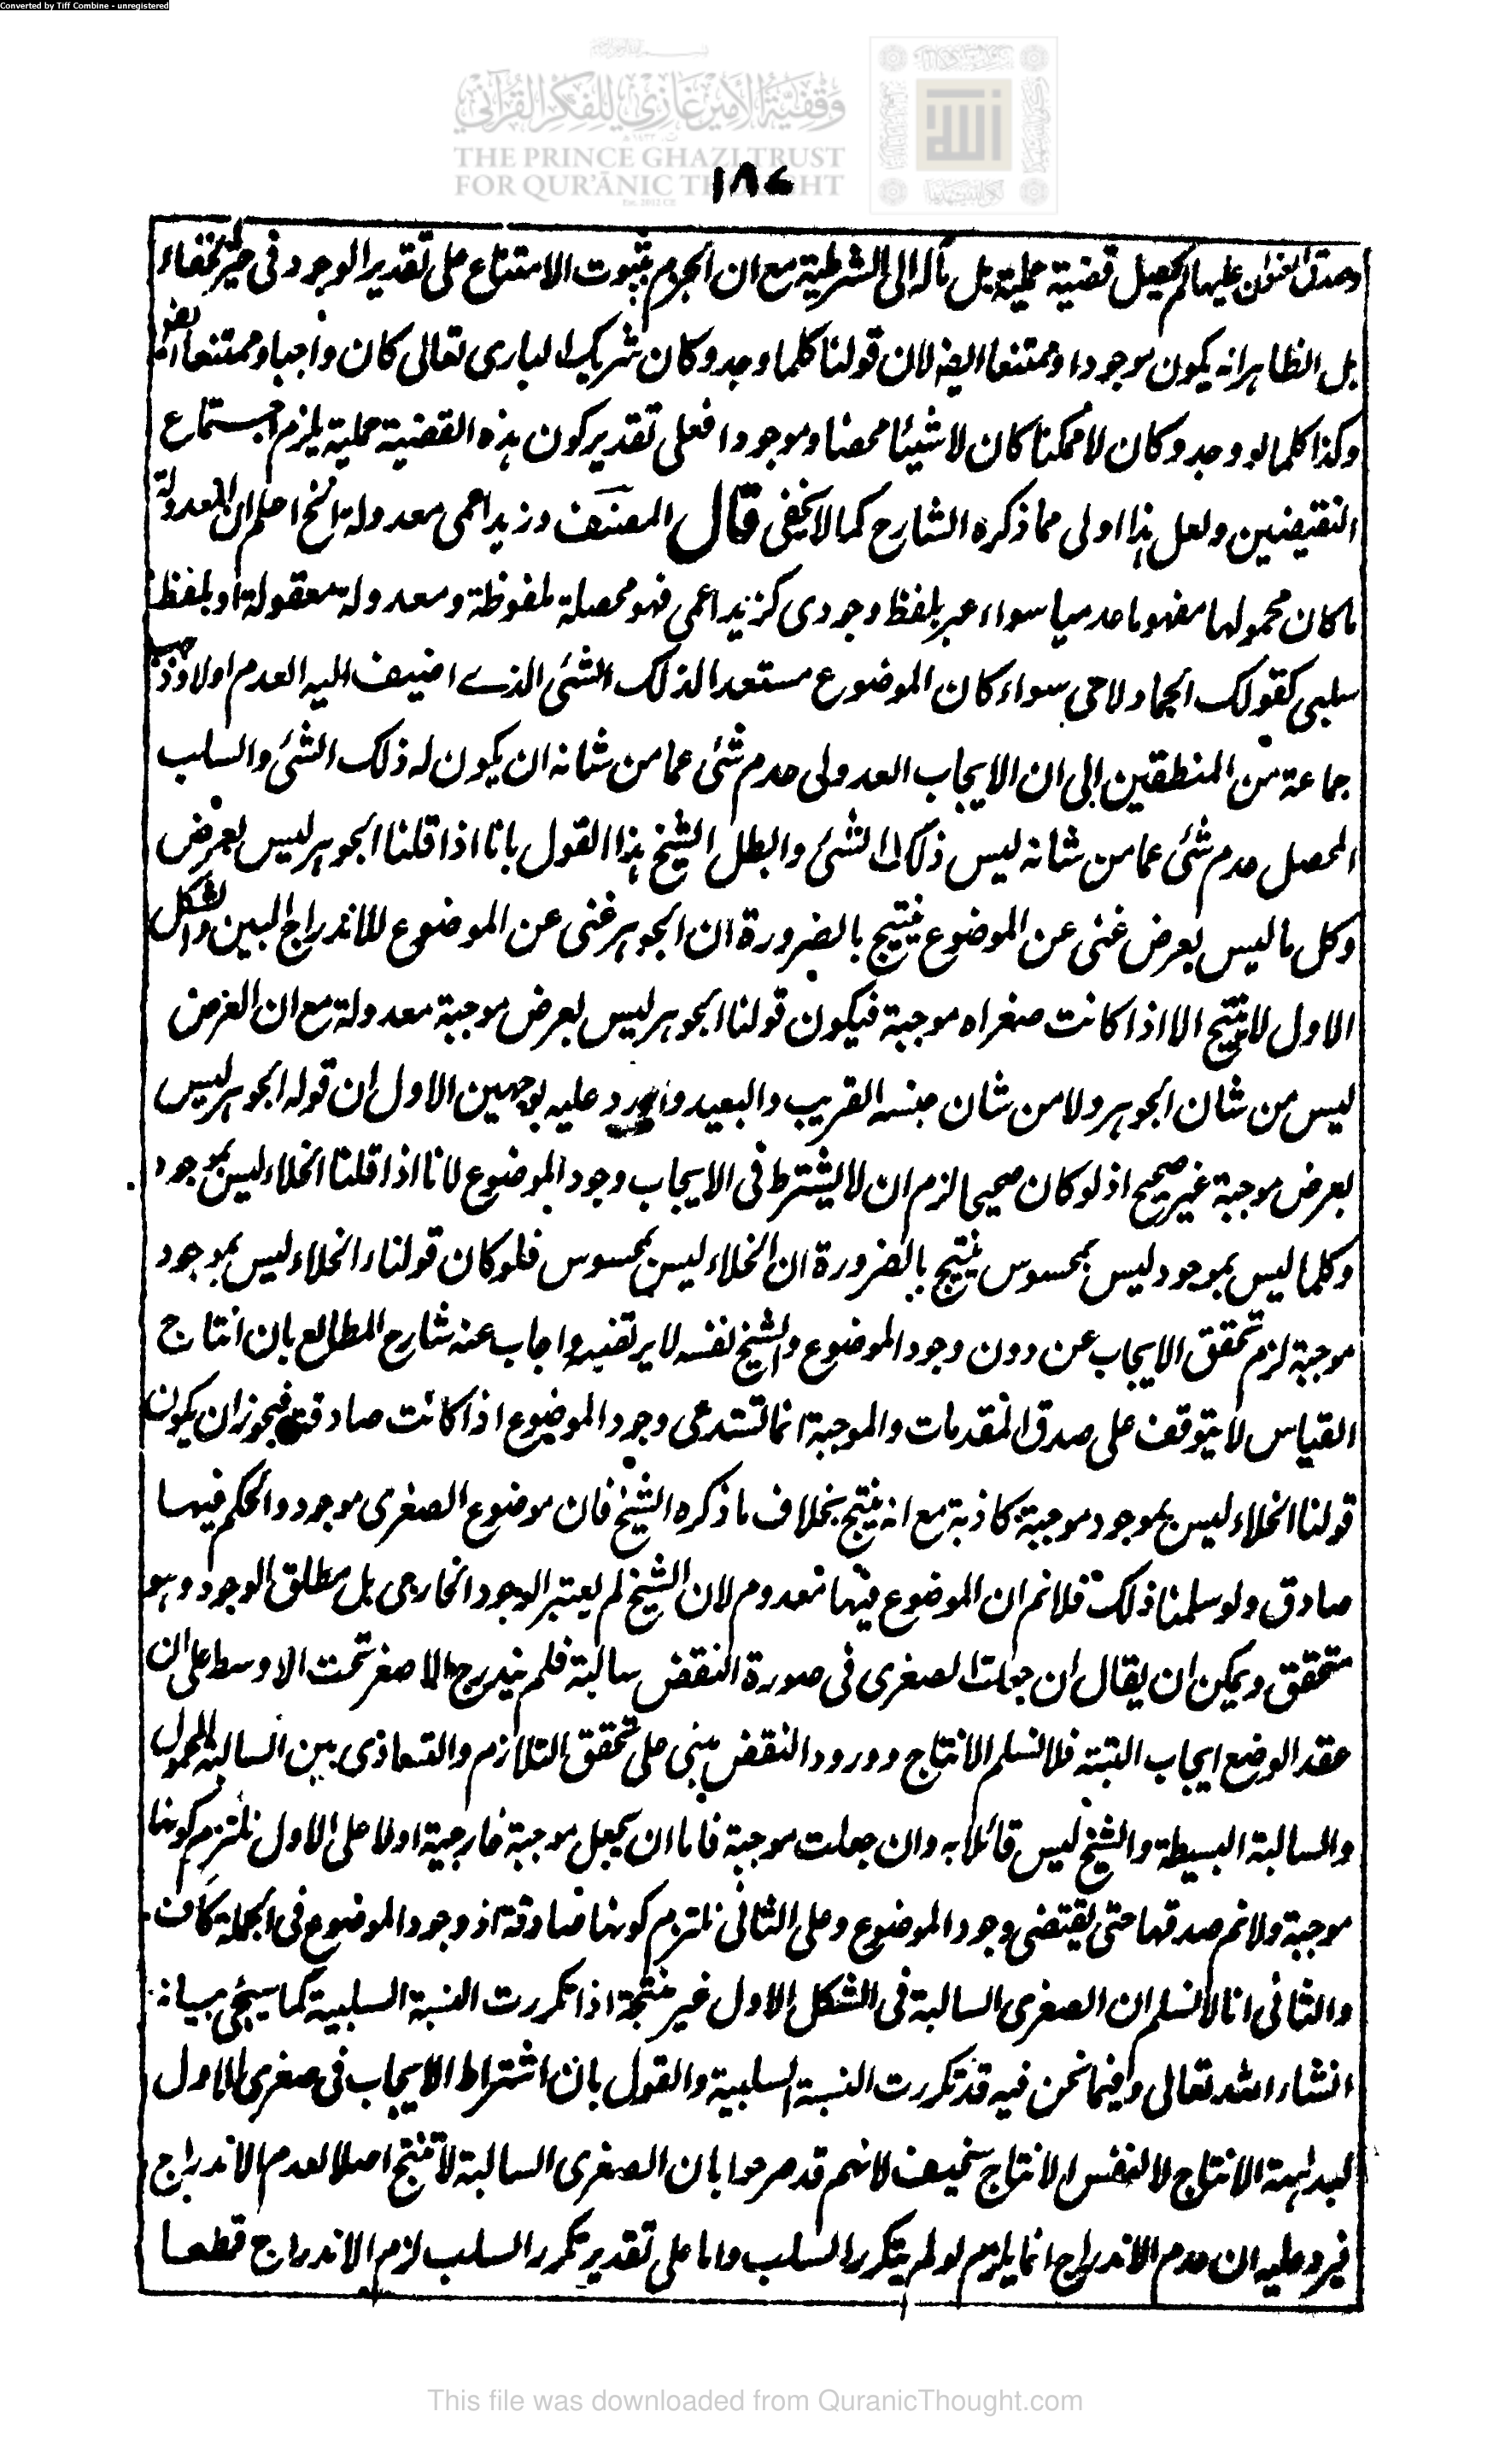 Converted by Tiff Combine - unregistered
وقفية الأمير غازي للفكر القرآني
THE PRINCE GHAZI TRUST
FOR QUR'ĀNIC THOUGHT
١٨٦
وصدق العنوان عليها لم يحصل قضية حملية بل مآله الى الشرطية مع ان الجزم بثبوت الامتناع على تقدير الوجود فى حيز الخفاء
بل الظاهر انه يكون موجودا وممتنعا ايضا لان قولنا كلما وجد وكان شريك البارى تعالى كان واجبا وممتنعا ايضا
وكذا كلما لو وجد وكان لا ممكنا كان لا شيئا محضا وموجودا فعلى تقدير كون هذه القضية حملية يلزم اجتماع
النقيضين ولعل هذا اولى مما ذكره الشارح كما لا يخفى قال المصنف وزيد اعمى معدولة الخ اعلم ان المعدولة
ما كان محمولها مفهوما عدميا سواء عبر بلفظ وجودى كزيد اعمى فهو محصلة ملفوظة ومعدولة معقولة او بلفظ
سلبى كقولك الجماد لا حى سواء كان الموضوع مستعدا لذلك الشئ الذى اضيف اليه العدم اولا وذهب
جماعة من المنطقين الى ان الايجاب العدولى عدم شئ عما من شانه ان يكون له ذلك الشئ والسلب
المحصل عدم شئ عما من شانه ليس ذلك الشئ وابطل الشيخ هذا القول بانا اذا قلنا الجوهر ليس بعرض
وكل ما ليس بعرض غنى عن الموضوع ينتج بالضرورة ان الجوهر غنى عن الموضوع للاندراج البين والشكل
الاول لا ينتج الا اذا كانت صغراه موجبة فيكون قولنا الجوهر ليس بعرض موجبة معدولة مع ان العرض
ليس من شان الجوهر ولا من شان جنسه القريب والبعيد واورد عليه بوجهين الاول ان قوله الجوهر ليس
بعرض موجبة غير صحيح اذ لو كان صحيحا لزم ان لا يشترط فى الايجاب وجود الموضوع لانا اذا قلنا الخلاء ليس بموجود
وكلما ليس بموجود ليس بمحسوس ينتج بالضرورة ان الخلاء ليس بمحسوس فلو كان قولنا الخلاء ليس بموجود
موجبة لزم تحقق الايجاب عن دون وجود الموضوع والشيخ نفسه لا يرتضيه واجاب عنه شارح المطالع بان انتاج
القياس لا يتوقف على صدق المقدمات والموجبة انما تستدعى وجود الموضوع اذا كانت صادقة فيجوز ان يكون
قولنا الخلاء ليس بموجود موجبة كاذبة مع انه ينتج بخلاف ما ذكره الشيخ فان موضوع الصغرى موجود والحكم فيها
صادق ولو سلمنا ذلك فلانم ان الموضوع فيها معدوم لان الشيخ لم يعتبر الوجود الخارجى بل مطلق الوجود وهو
متحقق ويمكن ان يقال ان جعلت الصغرى فى صورة النقض سالبة فلم يندرج الاصغر تحت الاوسط على ان
عقد الوضع ايجاب البتة فلا نسلم الانتاج وورود النقض مبنى على تحقق التلازم والتعاذى بين السالبة المحمول
والسالبة البسيطة والشيخ ليس قائلا به وان جعلت موجبة فاما ان يجعل موجبة خارجية اولا على الاول نلتزم كونها
موجبة ولانم صدقها حتى يقتضى وجود الموضوع وعلى الثانى نلتزم كونها صادقة اذ وجود الموضوع فى الجملة كاف
والثانى انا لا نسلم ان الصغرى السالبة فى الشكل الاول غير منتجة اذا تكررت النسبة السلبية كما سيجئ بيانه
انشاء الله تعالى وفيما نحن فيه قد تكررت النسبة السلبية والقول بان اشتراط الايجاب فى صغرى الاول
لبداهة الانتاج لا لنفس الانتاج سخيف لانهم قد صرحوا بان الصغرى السالبة لا تنتج اصلا لعدم الاندراج
فيرد عليه ان عدم الاندراج انما يلزم لو لم يتكرر السلب واما على تقدير تكرر السلب لزم الاندراج قطعا
This file was downloaded from QuranicThought.com